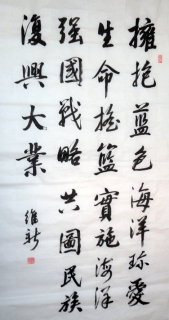 擁抱蓝色海洋珍愛
生命摇籃實施海洋
强國战略共圖民族
復興大業
維新